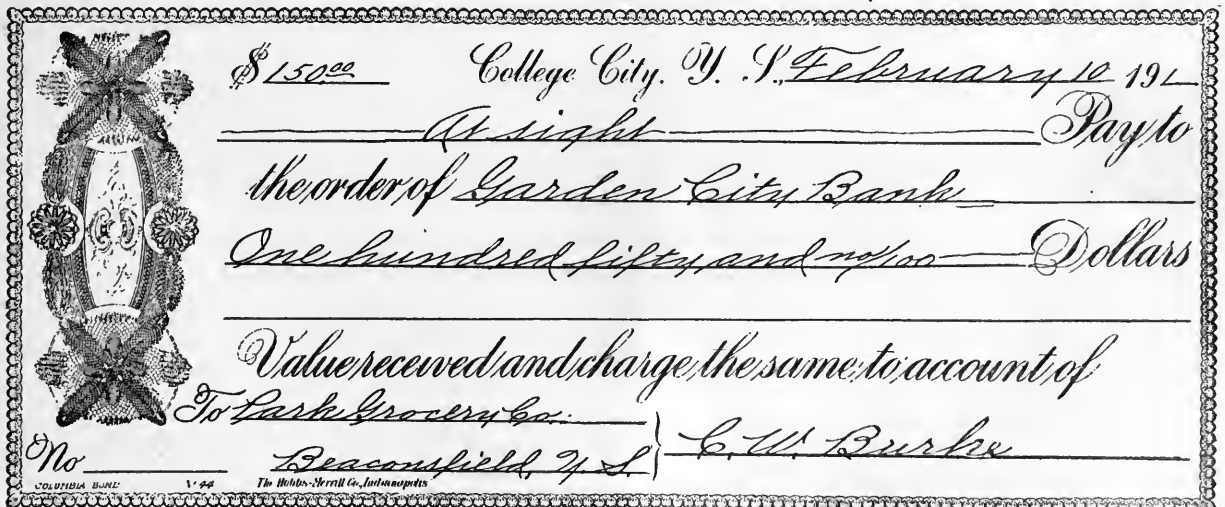 $ 150 00 College City, Y. S., February 10 191
At sight Pay to
the order of Garden City Bank
One hundred fifty and no/100 Dollars
Value received and charge the same to account of
To Park Grocery Co.
No Beaconsfield, Y. S. C. W. Burke
COLUMBIA BOND V-44 The Hobbs-Merrill Co., Indianapolis